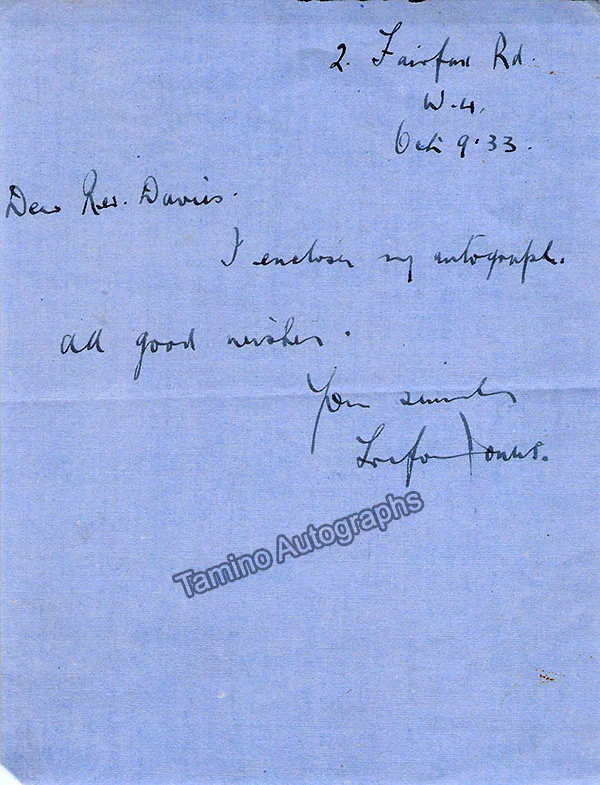 2. Fairfax Rd.
W.4.
Oct 9.33.
Dear Rev. Davies.
I enclose my autograph.
All good wishes.
Yours sincerely
Trefor Jones.
Tamino Autographs